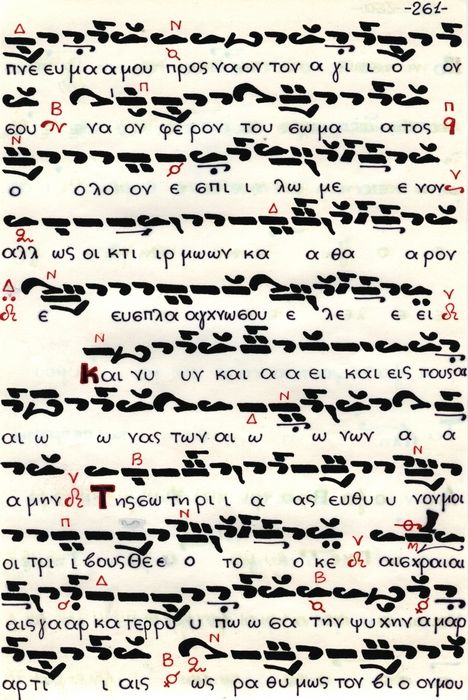 -261-
πνε ευ μα α μου προς να ον τον α γι ι ο ον
σου να ον φε ρον του σω μα α τος
ο ολο ον ε σπι ι λω με ε νον
αλλ ως οι κτι ιρ μω ων κα α θα α ρον
ε ευσπλα αγχνω σου ε λε ε ει
Και νυ υν και α α ει και εις τους αι
αι ω ω νας των αι ω ω νων α α
α μην Της σω τη ρι ι α ας ευθυ υ νον μοι
οι τρι ι βους Θε ε ο το ο κε αισχραι αι
αις γα αρ κα τερρυ υ πω ω σα την ψυχην α μαρ
αρ τι ι αις ως ρα θυ μως τον βι ο ον μου